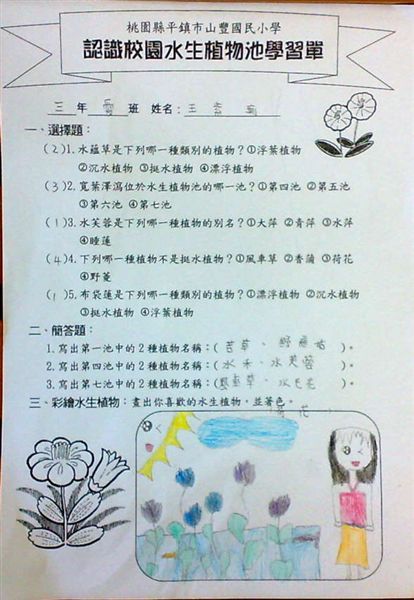 桃園縣平鎮市山豐國民小學
認識校園水生植物池學習單
三年愛班 姓名：王
一、選擇題：
(2)1.水蘊草是下列哪一種類別的植物？①浮葉植物
②沉水植物 ③挺水植物 ④漂浮植物
(3)2.寬葉澤瀉位於水生植物池的哪一池？①第四池 ②第五池
③第六池 ④第七池
(1)3.水芙蓉是下列哪一種植物的別名？①大萍 ②青萍 ③水萍
④睡蓮
(4)4.下列哪一種植物不是挺水植物？①風車草 ②香蒲 ③荷花
④野菱
(1)5.布袋蓮是下列哪一類別的植物？①漂浮植物 ②沉水植物
③挺水植物 ④浮葉植物
二、簡答題：
1.寫出第一池中的2種植物名稱：(苦草、野)。
2.寫出第四池中的2種植物名稱：(水禾、水芙蓉)。
3.寫出第七池中的2種植物名稱：(風車草、水)。
三、彩繪水生植物：畫出你喜歡的水生植物，並著色。
花